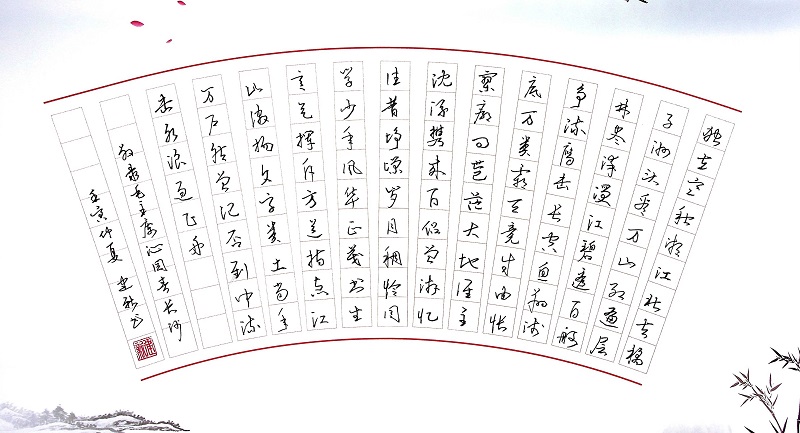 独立寒秋湘江北去橘
子洲头看万山红遍层
林尽染漫江碧透百舸
争流鹰击长空鱼翔浅
底万类霜天竞自由怅
寥廓问苍茫大地谁主
沉浮携来百侣曾游忆
往昔峥嵘岁月稠恰同
学少年风华正茂书生
意气挥斥方遒指点江
山激扬文字粪土当年
万户侯曾记否到中流
击水浪遏飞舟
敬录毛主席沁园春长沙
壬寅仲夏 书